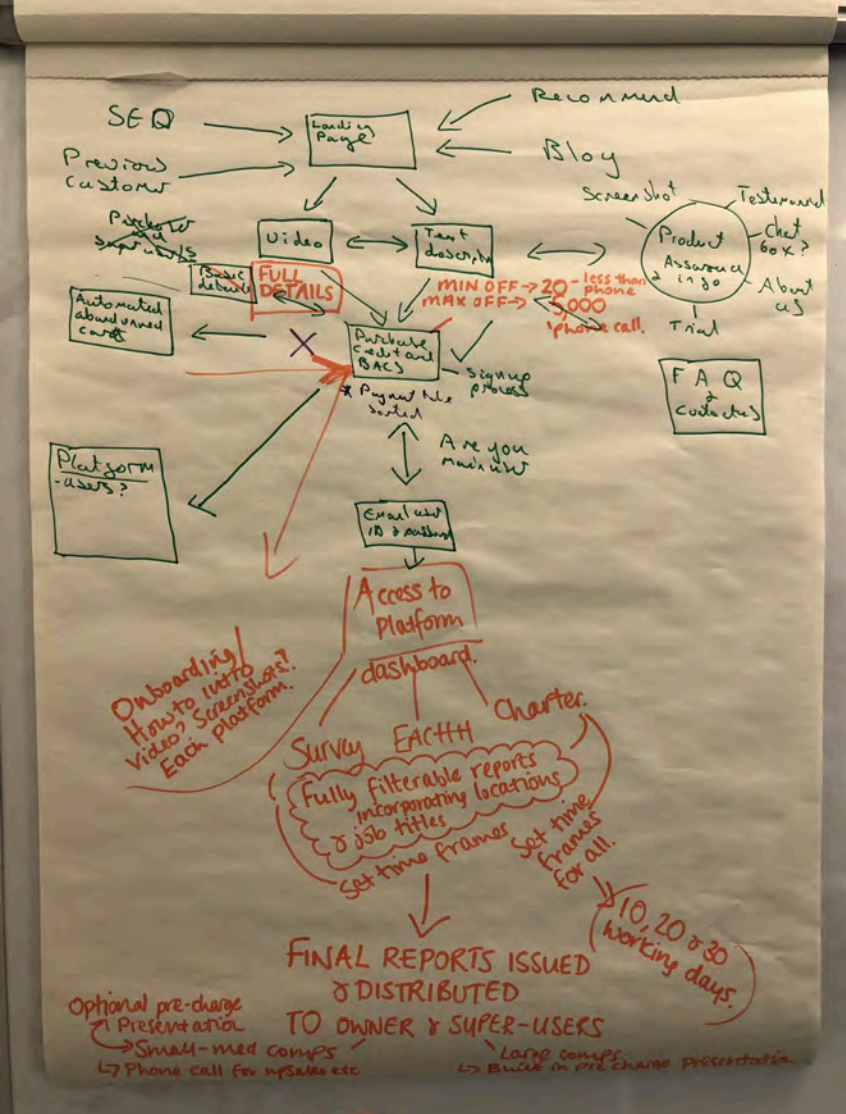 Recommend
SEO
Landing
Page
Blog
Previous
Customer
Screenshot
Testimonial
Chat
box?
Product
Assurance
About
us
Trial
Video
Text
Basic
details
FULL
DETAILS
MIN OFF → 20 - less than
phone
MAX OFF → 5,000
'phone call.
Automated
abandonned
cart
X
Purchase
Credit and
BACS
Sign up
process
* Payment to be
sorted
F A Q
&
Contact us
Are you
main user
Platform
- users?
Email user
ID &
Access to
Platform
dashboard.
Onboarding
How to intro
Video? Screenshots?
Each platform.
Survey
EACHH
Charter.
Fully filterable reports
incorporating locations
& job titles
Set time frames
Set time
frames
for all.
10, 20 & 30
working days.
FINAL REPORTS ISSUED
& DISTRIBUTED
TO OWNER & SUPER-USERS
Optional pre-charge
Presentation
Small-med comps
Phone call for upsales etc
Large comps
Built in pre charge presentation